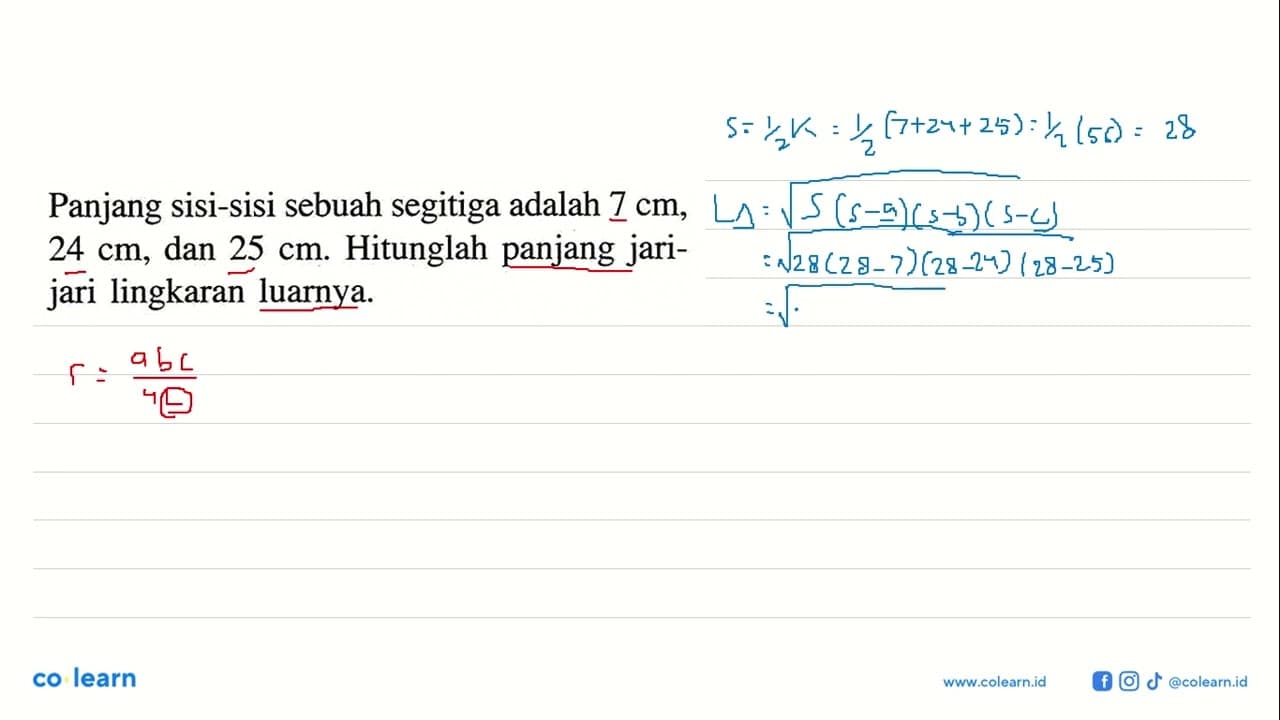 Panjang sisi-sisi sebuah segitiga adalah 7 cm,
24 cm, dan 25 cm. Hitunglah panjang jari-
jari lingkaran luarnya.
r = abc / 4L
s = 1/2 K = 1/2 (7+24+25) = 1/2 (56) = 28
L△ = √S(s-a)(s-b)(s-c)
= √28(28-7)(28-24)(28-25)
= √.
co·learn
www.colearn.id
@colearn.id